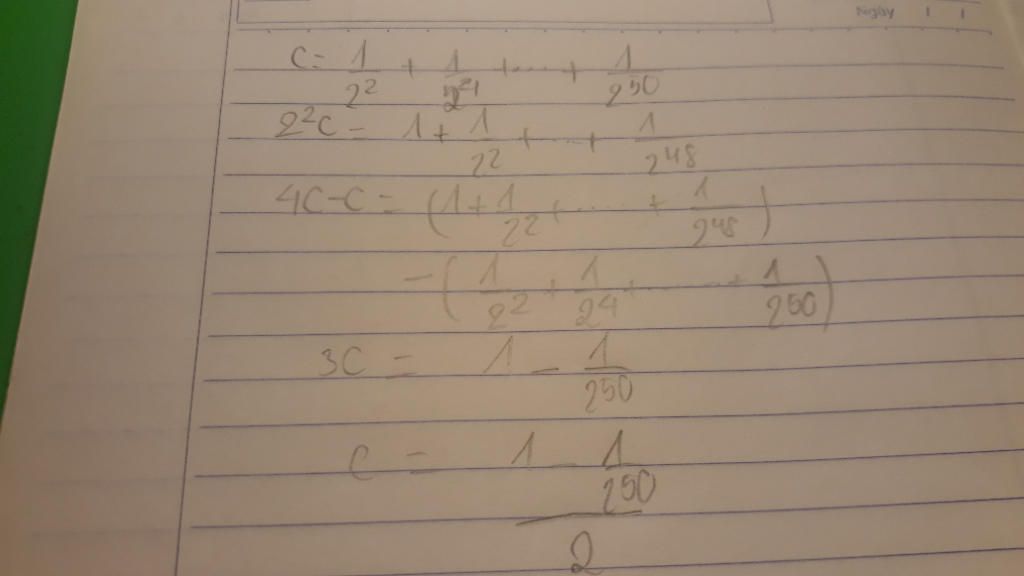 Ngày
C = 1/2² + 1/2⁴ + .... + 1/2⁵⁰
2²C = 1 + 1/2² + ... + 1/2⁴⁸
4C - C = (1 + 1/2² + ...... + 1/2⁴⁸)
- (1/2² + 1/2⁴ + ........ + 1/2⁵⁰)
3C = 1 - 1/2⁵⁰
C = (1 - 1/2⁵⁰)/2